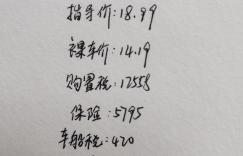 指导价:18.99
裸车价:14.19
购置税:12558
保险:5795
车船税:420